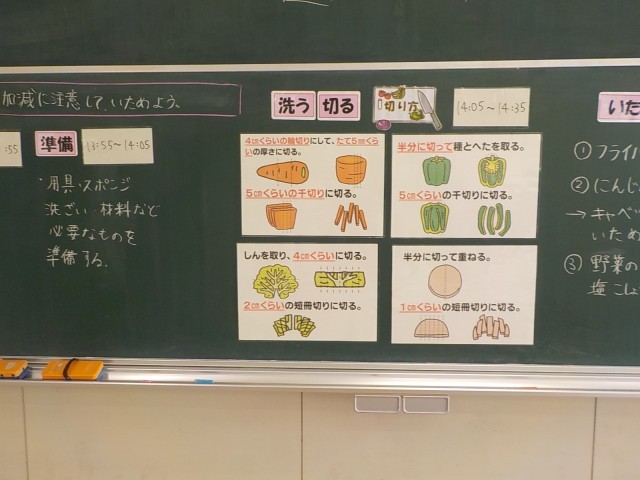 加減に注意して、いためよう。
:55
準備
13:55～14:05
・用具・スポンジ
洗ざい・材料など
必要なものを
準備する。
洗う 切る
切り方
14:05～14:35
4cmくらいの輪切りにして、たて5mmくら
いの厚さに切る。
5cmくらいの千切りに切る。
半分に切って種とへたを取る。
5cmくらいの千切りに切る。
しんを取り、4cmくらいに切る。
2cmくらいの短冊切りに切る。
半分に切って重ねる。
1cmくらいの短冊切りに切る。
いた
① フライハ
② にんじ
→ キャベ
いため
③ 野菜の
塩こしょ